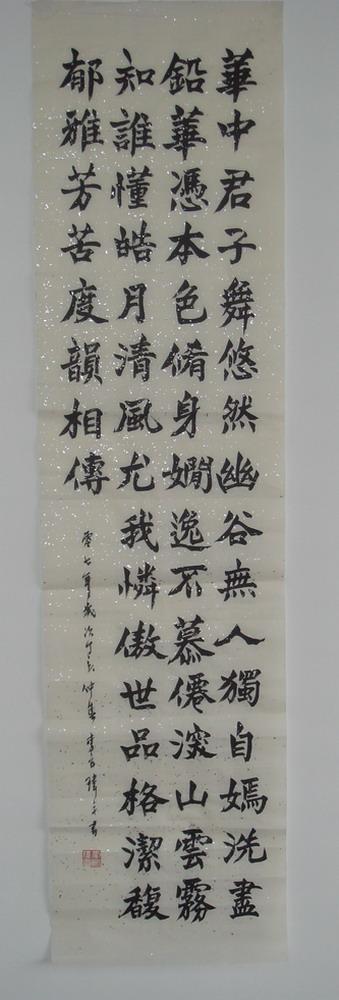 華中君子舞悠然幽谷無人獨自嫣洗盡
鉛華憑本色脩身嫺逸不慕僊深山雲霧
知誰懂皓月清風尤我憐傲世品格潔馥
郁雅芳苦度韻相傳
零七年歲次丁亥仲春 李